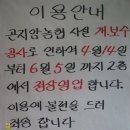 이용안내
곤지암농협 사원 개·보수
공사로 인하여 4월14일
부터 6월5일 까지 2층
에서 정상영업 합니다.
이용에 불편을 드려
죄송 합니다